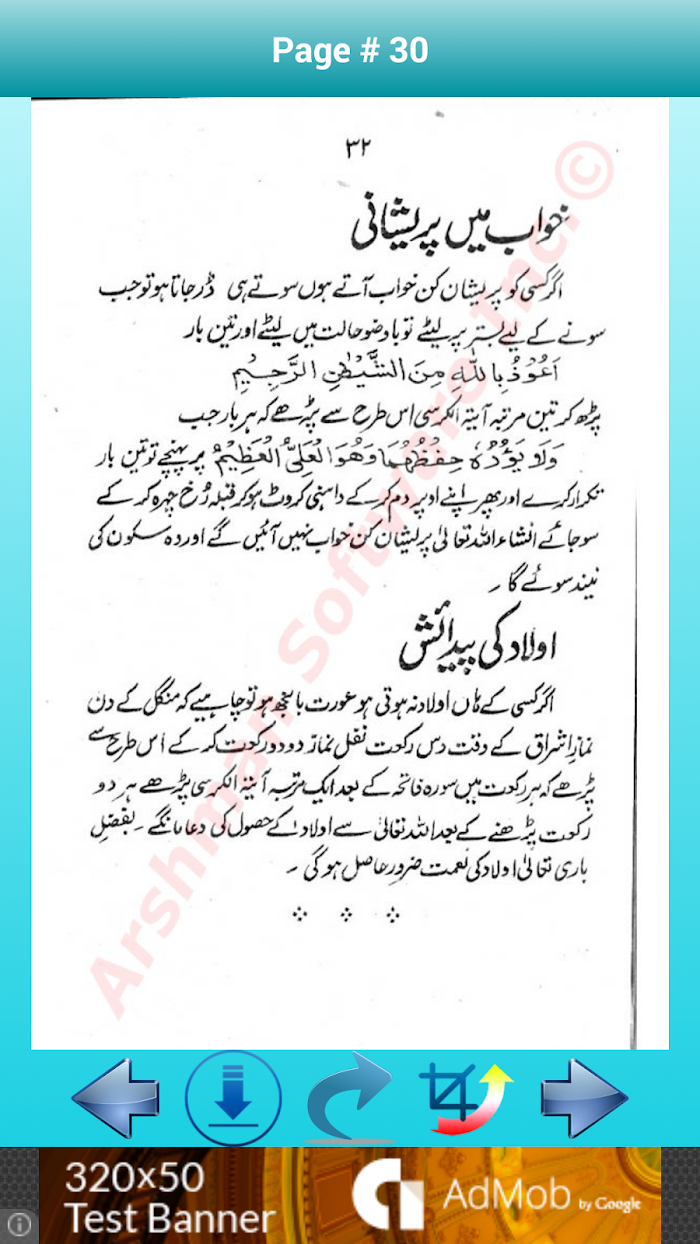 Page # 30
۳۲
خواب میں پریشانی
اگر کسی کو پریشان کن خواب آتے ہوں سوتے ہی ڈر جاتا ہو تو جب
سونے کے لیے بستر پر لیٹے تو باوضو حالت میں لیٹے اور تین بار
اَعُوْذُ بِاللّٰهِ مِنَ الشَّيْطٰنِ الرَّجِيْمِ
پڑھ کر تین مرتبہ آیۃ الکرسی اس طرح سے پڑھے کہ ہر بار جب
وَلَا يَؤُدُهٗ حِفْظُهُمَا وَهُوَ الْعَلِيُّ الْعَظِيْمُ پر پہنچے تو تین بار
تکرار کرے اور پھر اپنے اوپر دم کر کے داہنی کروٹ ہو کر قبلہ رُخ چہرہ کر کے
سو جائے انشاء اللہ تعالیٰ پریشان کن خواب نہیں آئیں گے اور وہ سکون کی
نیند سوئے گا ۔
اولاد کی پیدائش
اگر کسی کے ہاں اولاد نہ ہوتی ہو عورت بانجھ ہو تو چاہیے کہ منگل کے دن
نمازِ اشراق کے وقت دس رکعت نفل نماز دو دو رکعت کر کے اس طرح سے
پڑھے کہ ہر رکعت میں سورہ فاتحہ کے بعد ایک مرتبہ آیۃ الکرسی پڑھے ہر دو
رکعت پڑھنے کے بعد اللہ تعالیٰ سے اولاد کے حصول کی دعا مانگے ۔ بفضلِ
باری تعالیٰ اولاد کی نعمت ضرور حاصل ہو گی ۔
Arshman Software Inc. ©
320x50
Test Banner
AdMob by Google